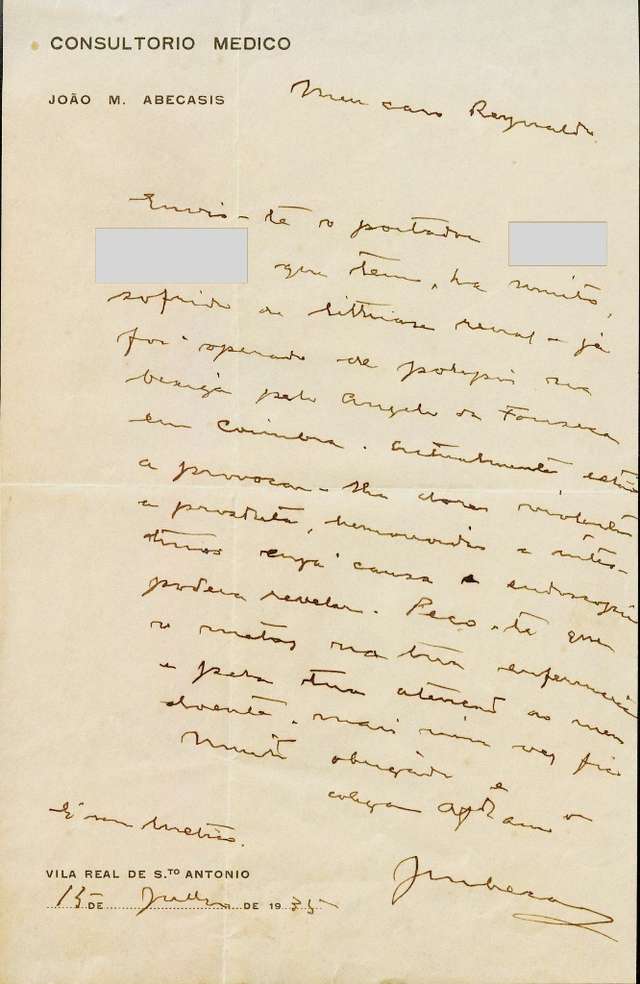 CONSULTORIO MEDICO
JOÃO M. ABECASIS
Meu caro Reynaldo
Envio-te o portador
que tem, ha muito,
sofrido de littiase renal - já
foi operado de
bexiga pelo Angelo da Fonseca
em Coimbra. Actualmente, está
a provocar-lhe dores violentas
a prostata, hemorroidas e intes-
tinos cuja causa a endoscopia
podera revelar. Peço-te que
o metas na tua enfermaria
e pela tua atenção ao meu
doente, mais uma vez fico
Muito obrigado
colega e am.º
VILA REAL DE S.TO ANTONIO
15 DE Julho DE 1935